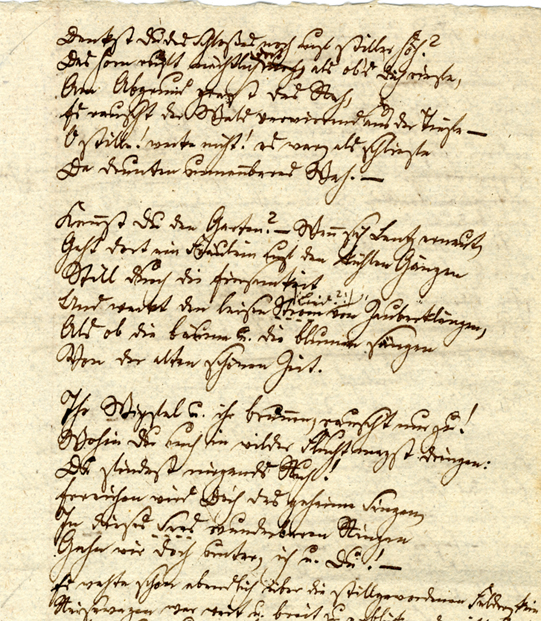 Denkst Du des Schloßes noch auf stiller Höh?
Das Horn ruft nächtlich dort, als ob's Dich riefe,
Am Abgrund grast das Reh,
Es rauscht der Wald verwirrend aus der Tiefe —
O stille! wecke nicht! es war, als schliefe
Da drunten unnennbares Weh. —
Kennst Du den Garten? — Wenn sich Lentz erneut,
Geht dort ein Fräulein auf den kühlen Gängen
Still durch die Einsamkeit
Und weckt den leisen Strom von Zauberklängen,
Als ob die bäume u. die blumen sängen
Von der alten schönen Zeit.
Ihr Wipfel u. ihr brunnen, rauscht nur zu!
Wohin Du auch in wilder Flucht magst dringen:
Du findest nirgends Ruh!
Erreichen wird Dich das geheime Singen,
In dieses Sees wunderbaren Ringen
Gehn wir doch unter, ich u. Du! —
Es wehte schon abendlich über die stillgewordenen Felder, kein
Reisewagen war weit u. breit zu